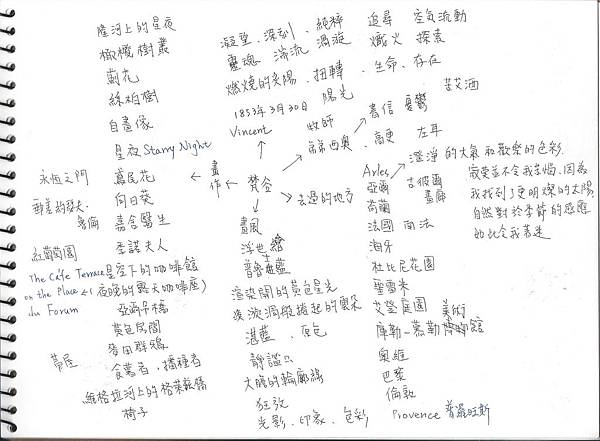 隆河上的星夜
橄欖樹叢
薊花
絲柏樹
自畫像
星夜 Starry Night
鳶尾花
向日葵
嘉舍醫生
季諾夫人
永恆之門
郵差約瑟夫
魯倫
紅葡萄園
The Cafe Terrace 星空下的咖啡館
on the Place (夜晚的露天咖啡座)
du Forum
亞爾吊橋
黃色房間
麥田群鴉
黃屋
食薯者、播種者
維格拉河上的格萊茲橋
椅子
凝望、深刻、純粹
靈魂、湍流、漩渦
燃燒的夕陽、扭轉
追尋 空氣流動
熾火 探索
生命、存在
陽光
苦艾酒
1853年3月30日
Vincent
牧師
弟弟西奧
書信 憂鬱
高更 左耳
畫作 ← 梵谷 → 去過的地方
畫風
浮世繪
普魯士藍
渲染開的黃色星光
海浪洶湧捲起的雲朵
湛藍、原色
靜謐
大膽的輪廓線
狂放
光影、印象、色彩
Arles → 澄淨的大氣和歡樂的色彩
亞爾
荷蘭
法國 南法
海牙
杜比尼花園
聖雷米
艾登庭園
庫勒-慕勒美術館
奧維
巴黎
倫敦
Provence 普羅旺斯
古彼爾
畫廊
寂寞並不令我苦惱,因為
我找到了更明燦的太陽
自然對於季節的感應
如此令我著迷